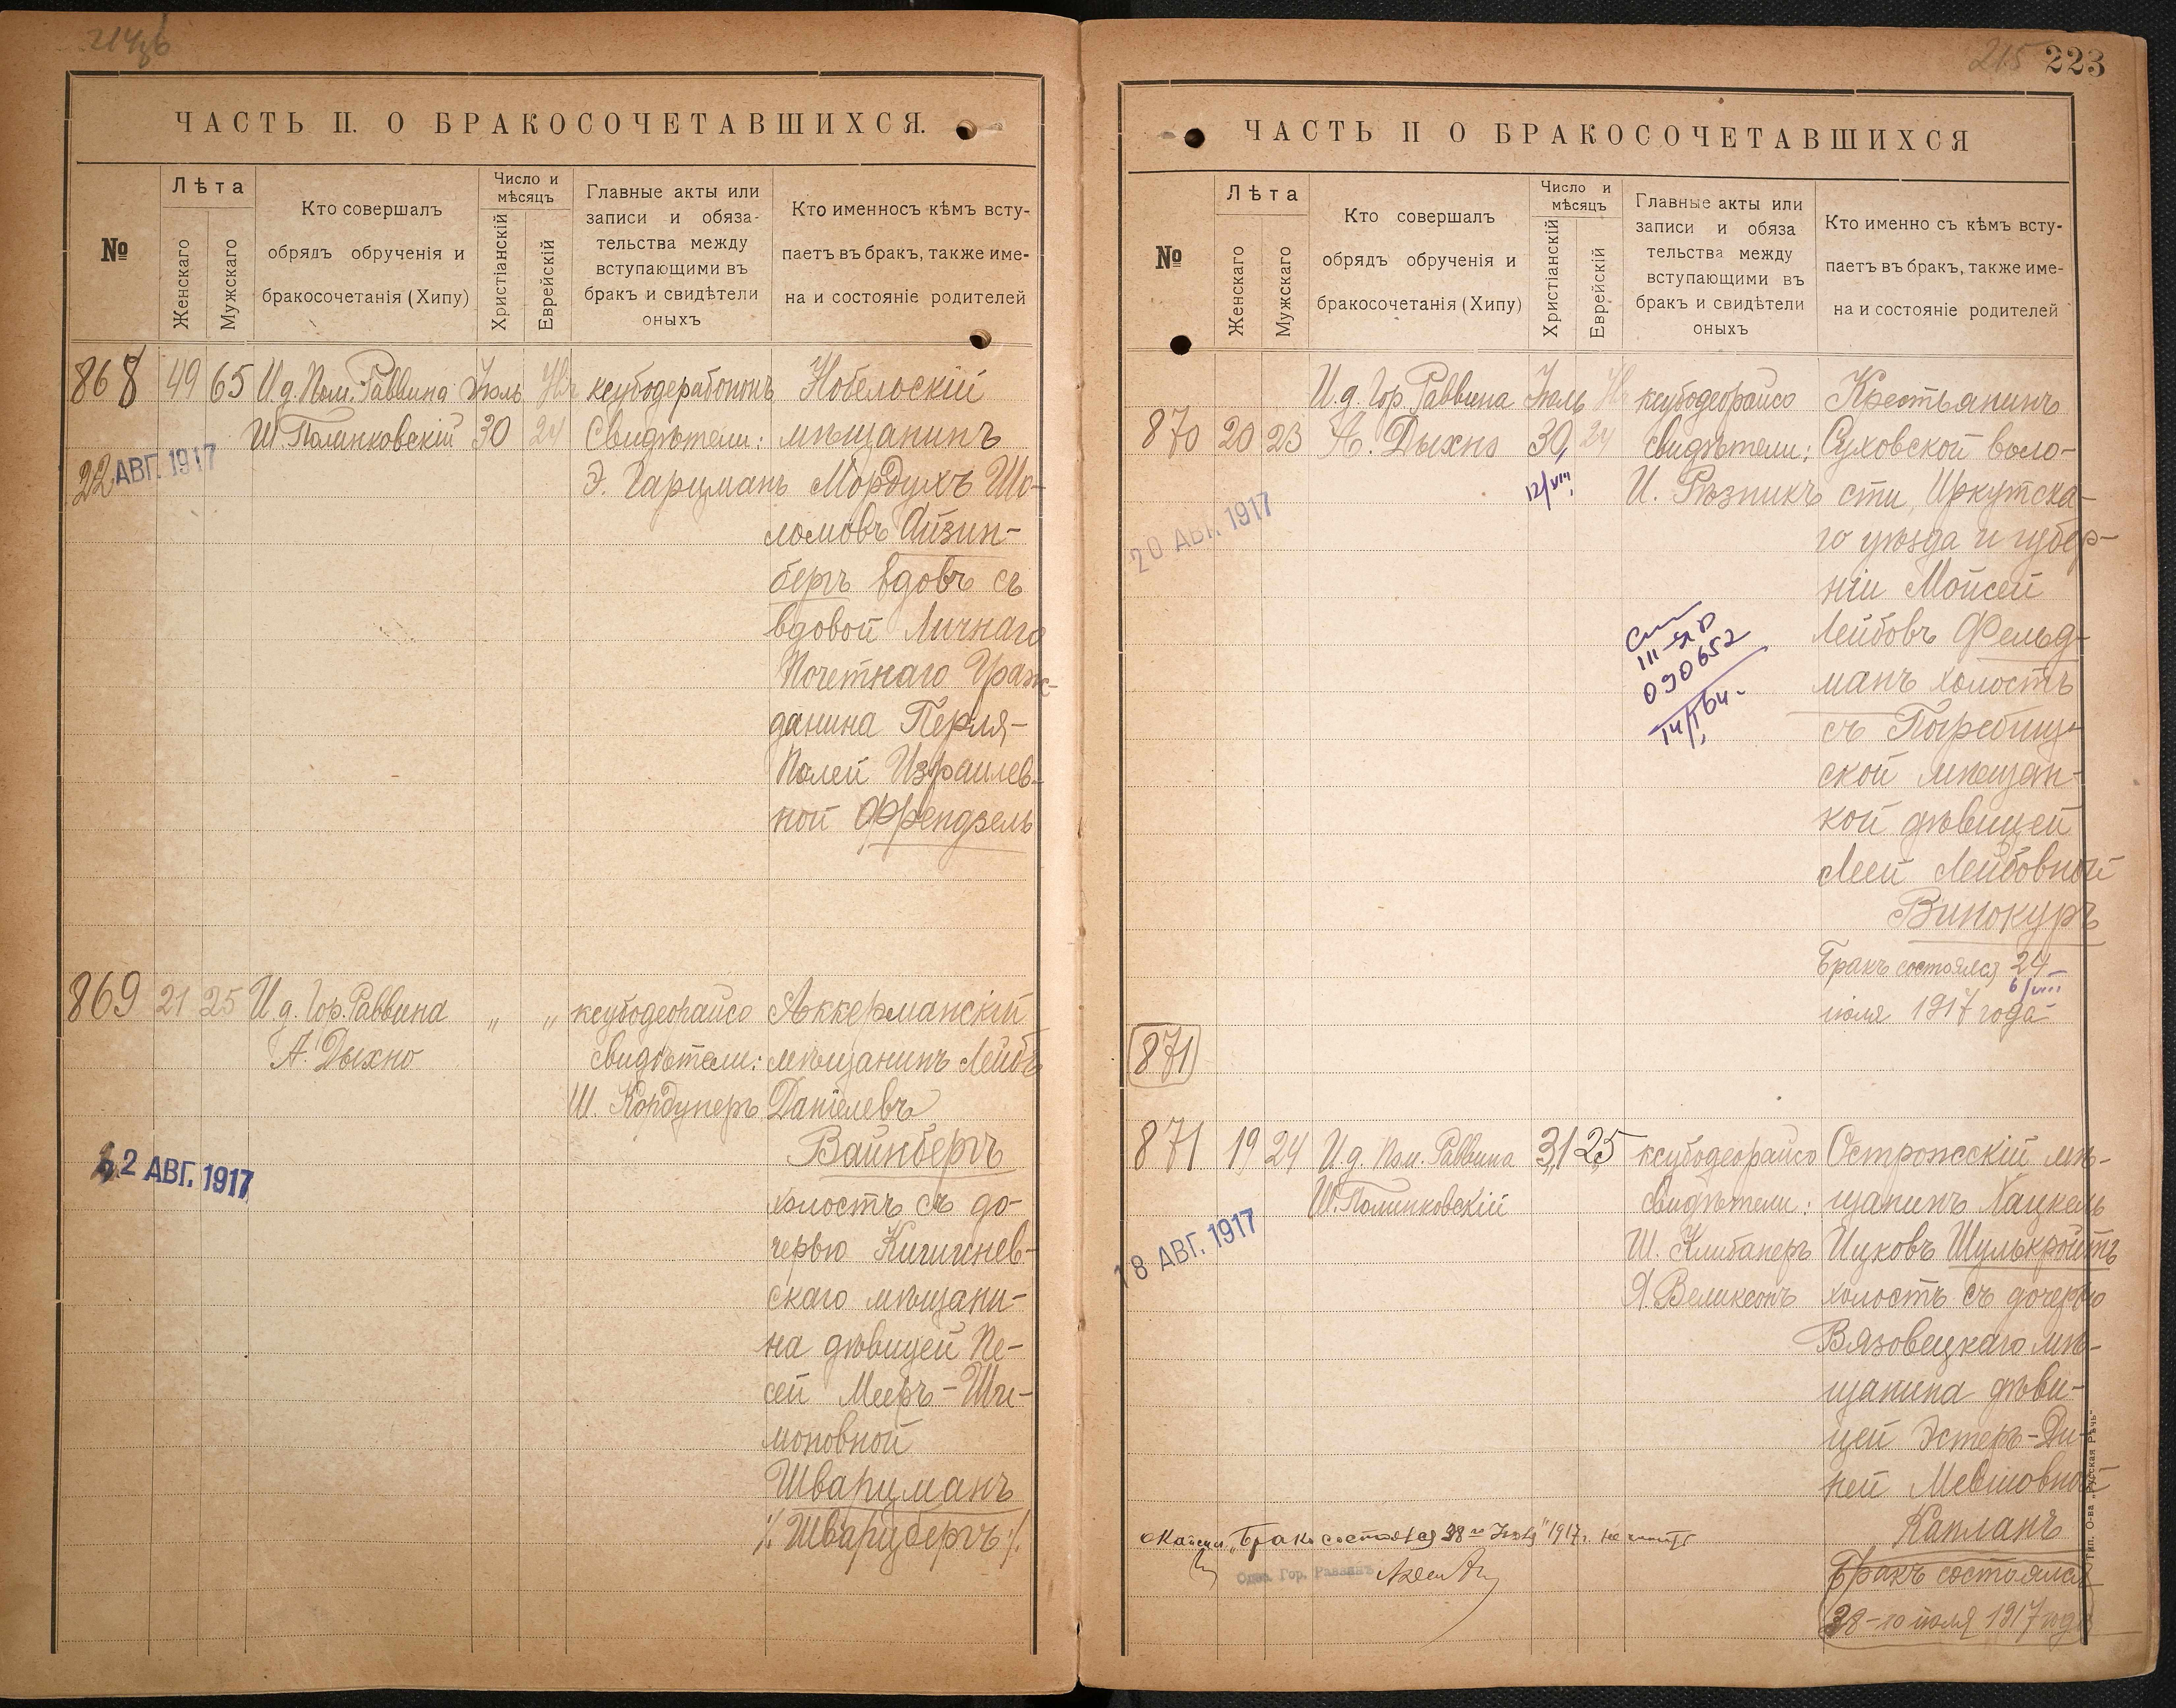 ЧАСТЬ II. О БРАКОСОЧЕТАВШИХСЯ.
№
Лѣта
Женскаго
Мужскаго
Кто совершалъ
обрядъ обрученія и
бракосочетанія (Хипу)
Число и
мѣсяцъ
Христіанскій
Еврейскій
Главные акты или
записи и обяза-
тельства между
вступающими въ
бракъ и свидѣтели
оныхъ
Кто именносъ кѣмъ всту-
паетъ въ бракъ, также име-
на и состояніе родителей
868 49 65
И д. Пом. Раввина
Ш. Полинковскій
Іюль
30
24
ксубодерабононъ
Свидѣтели:
Э. Гарцманъ
22 АВГ. 1917
Нобелоскій
мѣщанинъ
Мордухъ Шо-
ломовъ Айзин-
бергъ вдовъ съ
вдовой Личнаго
Почетнаго Граж-
данина Перля-
Полей Израилев-
ной Френдзель
869 21 25
И д. Гор. Раввина
А. Дыхно
„ „
ксубодеорайсо
свидѣтели:
Ш. Кордунеръ
2 АВГ. 1917
Аккерманскій
мѣщанинъ Лейбъ
Даніелевъ
Вайнбергъ
холостъ съ до-
черью Кишинев-
скаго мѣщани-
на дѣвицей Пе-
сей Мееръ-Ши-
моновной
Шварцманъ
/:Шварцбергъ:/
215 223
ЧАСТЬ II О БРАКОСОЧЕТАВШИХСЯ
№
Лѣта
Женскаго
Мужскаго
Кто совершалъ
обрядъ обрученія и
бракосочетанія (Хипу)
Число и
мѣсяцъ
Христіанскій
Еврейскій
Главные акты или
записи и обяза
тельства между
вступающими въ
бракъ и свидѣтели
оныхъ
Кто именно съ кѣмъ всту-
паетъ въ бракъ, также име-
на и состояніе родителей
870 20 23
И.д. Гор. Раввина
А. Дыхно
Іюль
30, 24
12/VIII
ксубодеорайсо
свидѣтели:
И. Рѣзникъ
20 АВГ. 1917
III-ЯР
090652
Крестьянинъ
Суховской воло-
сти, Иркутска-
го уѣзда и губер-
ніи Мойсей
Лейбовъ Фельд-
манъ холостъ
съ Погребищ-
ской мѣщан-
кой дѣвицей
Леей Лейбовной
Винокуръ
Бракъ состоялся 24-
6/VIII
іюля 1917 года
871
871 19 24
И.д. Пом. Раввина
Ш. Полинковскій
31 25
ксубодеорайсо
свидѣтели:
Ш. Клибанеръ
Я. Великсонъ
18 АВГ. 1917
Острожскій мѣ-
щанинъ Хацкель
Ицковъ Шулькройтъ
холостъ съ дочерью
Вязовецкаго мѣ-
щанина дѣви-
цей Эстеръ-Ди-
ней Мевшовной
Капланъ
Бракъ состоялся
28-го іюля 1917 года
„Бракъ состоялся 28го Іюля" 1917г. не читать
Одес. Гор. Раввинъ
Тип. О-ва „Русская Рѣчь"